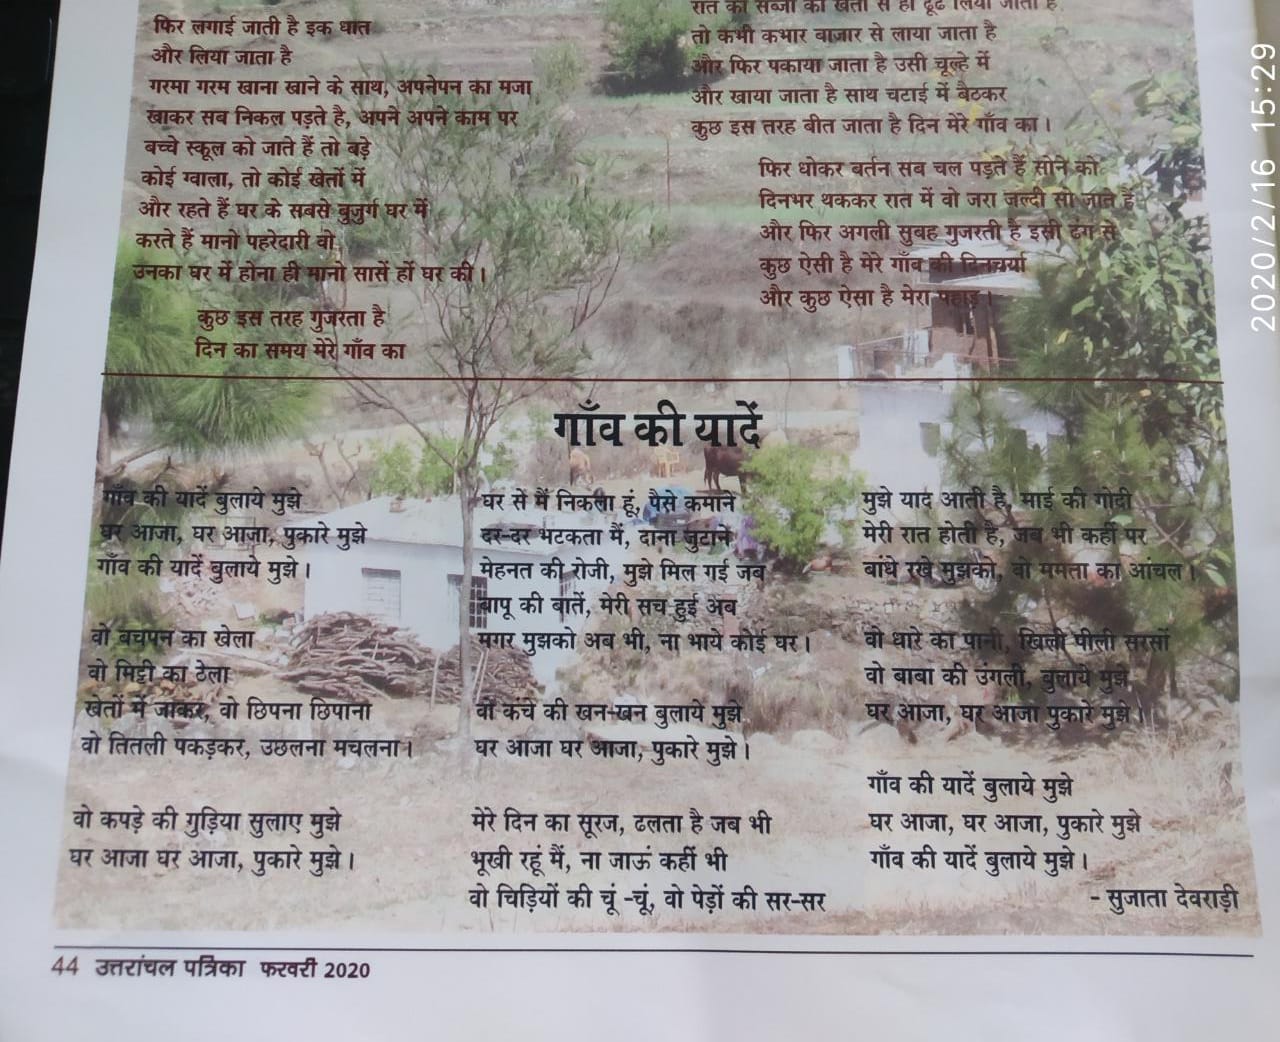 फिर लगाई जाती है इक धात
और लिया जाता है
गरमा गरम खाना खाने के साथ, अपनेपन का मजा
खाकर सब निकल पड़ते है, अपने अपने काम पर
बच्चे स्कूल को जाते हैं तो बड़े
कोई ग्वाला, तो कोई खेतों में
और रहते हैं घर के सबसे बुजुर्ग घर में
करते हैं मानो पहरेदारी वो
उनका घर में होना ही मानो सासें हों घर की।
कुछ इस तरह गुजरता है
दिन का समय मेरे गाँव का
रात को सब्जी को खेतों से ही ढूंढ लिया जाता है
तो कभी कभार बाजार से लाया जाता है
और फिर पकाया जाता है उसी चूल्हे में
और खाया जाता है साथ चटाई में बैठकर
कुछ इस तरह बीत जाता है दिन मेरे गाँव का।
फिर धोकर बर्तन सब चल पड़ते हैं सोने को
दिनभर थककर रात में वो जरा जल्दी सो जाते हैं
और फिर अगली सुबह गुजरती है इसी ढंग से
कुछ ऐसी है मेरे गाँव की दिनचर्या
और कुछ ऐसा है मेरा पहाड़।
गाँव की यादें
गाँव की यादें बुलाये मुझे
घर आजा, घर आजा, पुकारे मुझे
गाँव की यादें बुलाये मुझे।
वो बचपन का खेला
वो मिट्टी का ठेला
खेतों में जाकर, वो छिपना छिपाना
वो तितली पकड़कर, उछलना मचलना।
वो कपड़े की गुड़िया सुलाए मुझे
घर आजा घर आजा, पुकारे मुझे।
घर से मैं निकला हूं, पैसे कमाने
दर-दर भटकता मैं, दाना जुटाने
मेहनत की रोजी, मुझे मिल गई जब
बापू की बातें, मेरी सच हुई अब
मगर मुझको अब भी, ना भाये कोई घर।
वो कंचे की खन-खन बुलाये मुझे
घर आजा घर आजा, पुकारे मुझे।
मेरे दिन का सूरज, ढलता है जब भी
भूखी रहूं मैं, ना जाऊं कहीं भी
वो चिड़ियों की चूं -चूं, वो पेड़ों की सर-सर
मुझे याद आती है, माई की गोदी
मेरी रात होती है, जब भी कहीं पर
बांधे रखे मुझको, वो ममता का आंचल।
वो धारे का पानी, खिली पीली सरसों
वो बाबा की उंगली, बुलाये मुझे
घर आजा, घर आजा पुकारे मुझे।
गाँव की यादें बुलाये मुझे
घर आजा, घर आजा, पुकारे मुझे
गाँव की यादें बुलाये मुझे।
- सुजाता देवराड़ी
44 उत्तरांचल पत्रिका फरवरी 2020
2020/2/16 15:29